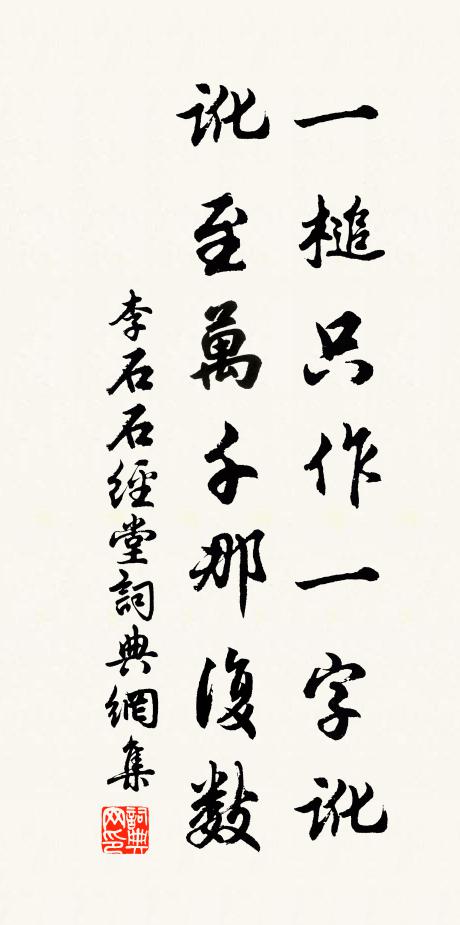 一槌只作一字訛
訛至萬千那復数
李石石經堂詞典網集
詞典網印